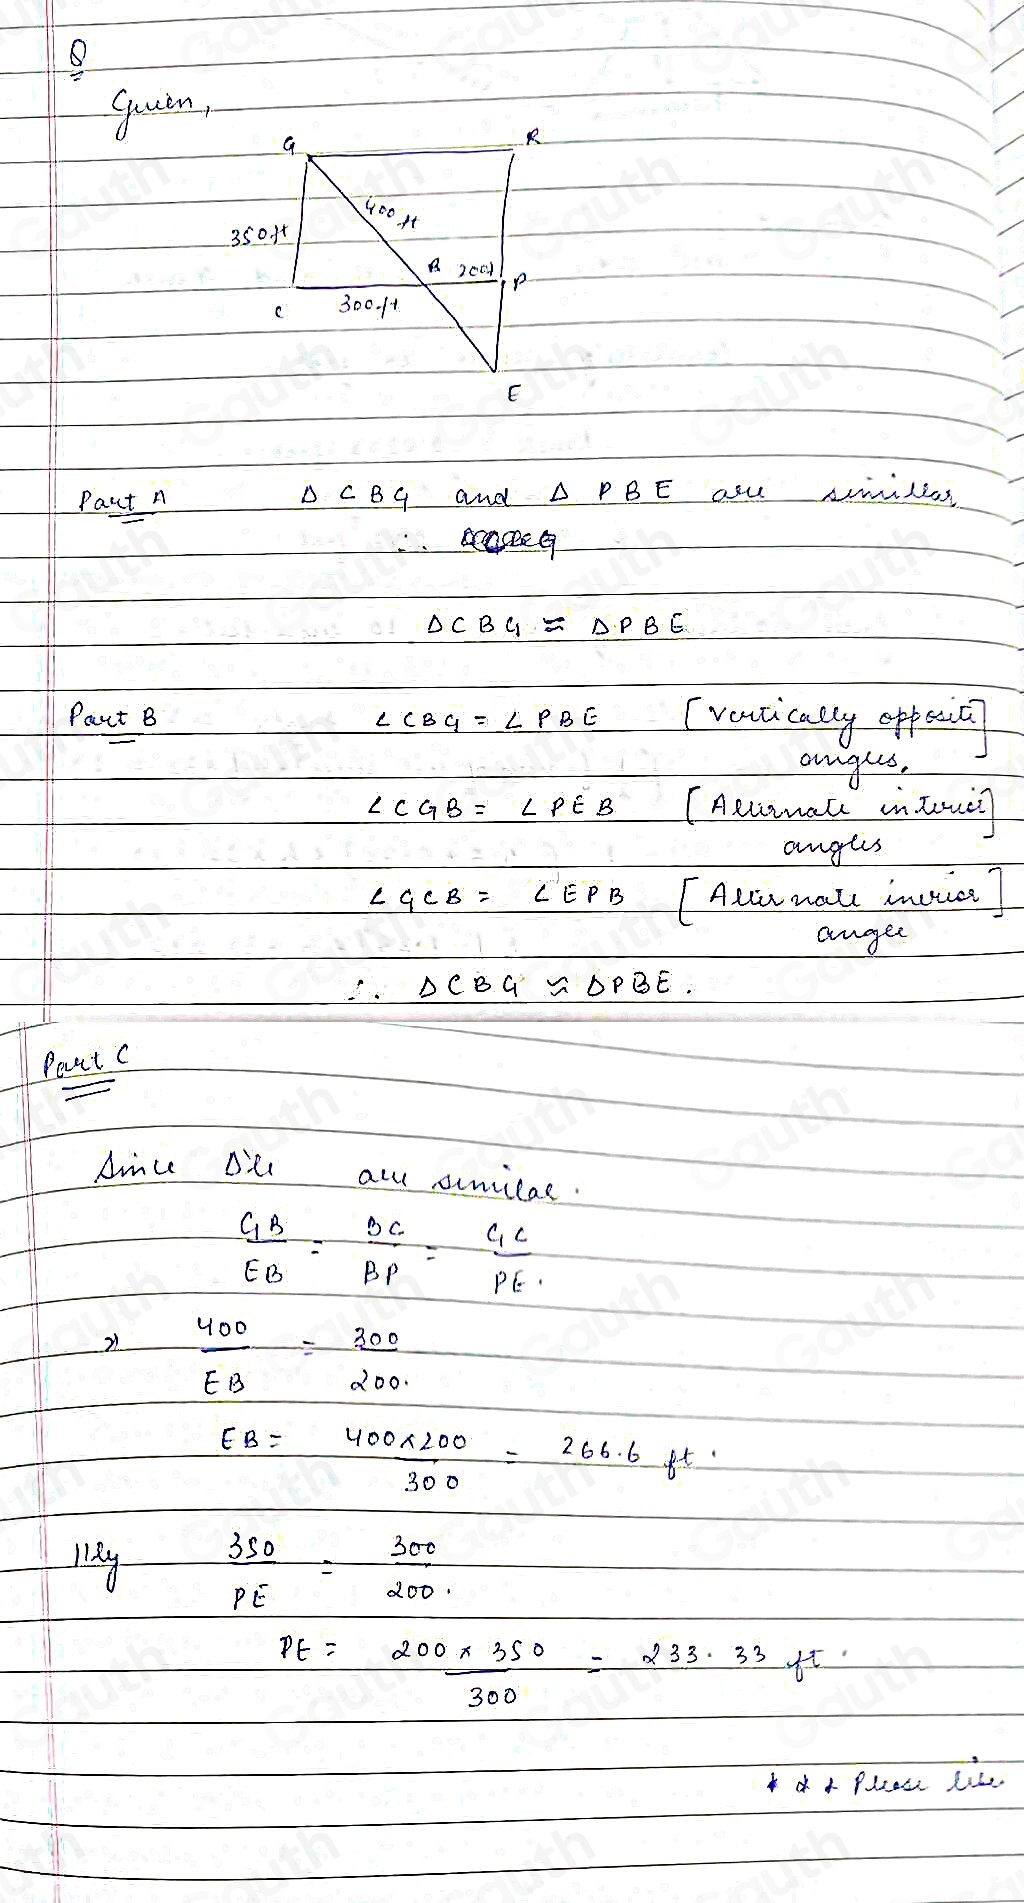 Q
Given,
G R
400 ft
350 ft
B 200 ft P
C 300 ft
E
Part A Δ CBG and Δ PBE are simillar
∴
ΔCBG ≈ ΔPBE
Part B ∠CBG = ∠PBE [Vertically opposite]
angles.
∠CGB = ∠PEB [Alternate interior]
angles
∠GCB = ∠EPB [Alternate inerior]
angle
∴ ΔCBG ≈ ΔPBE.
Part C
Since Δ'le are similar.
GB/EB = BC/BP = GC/PE.
400/EB = 300/200.
EB = 400×200/300 = 266.6 ft.
111ly 350/PE = 300/200.
PE = 200 × 350/300 = 233.33 ft.
Please like
Gauth